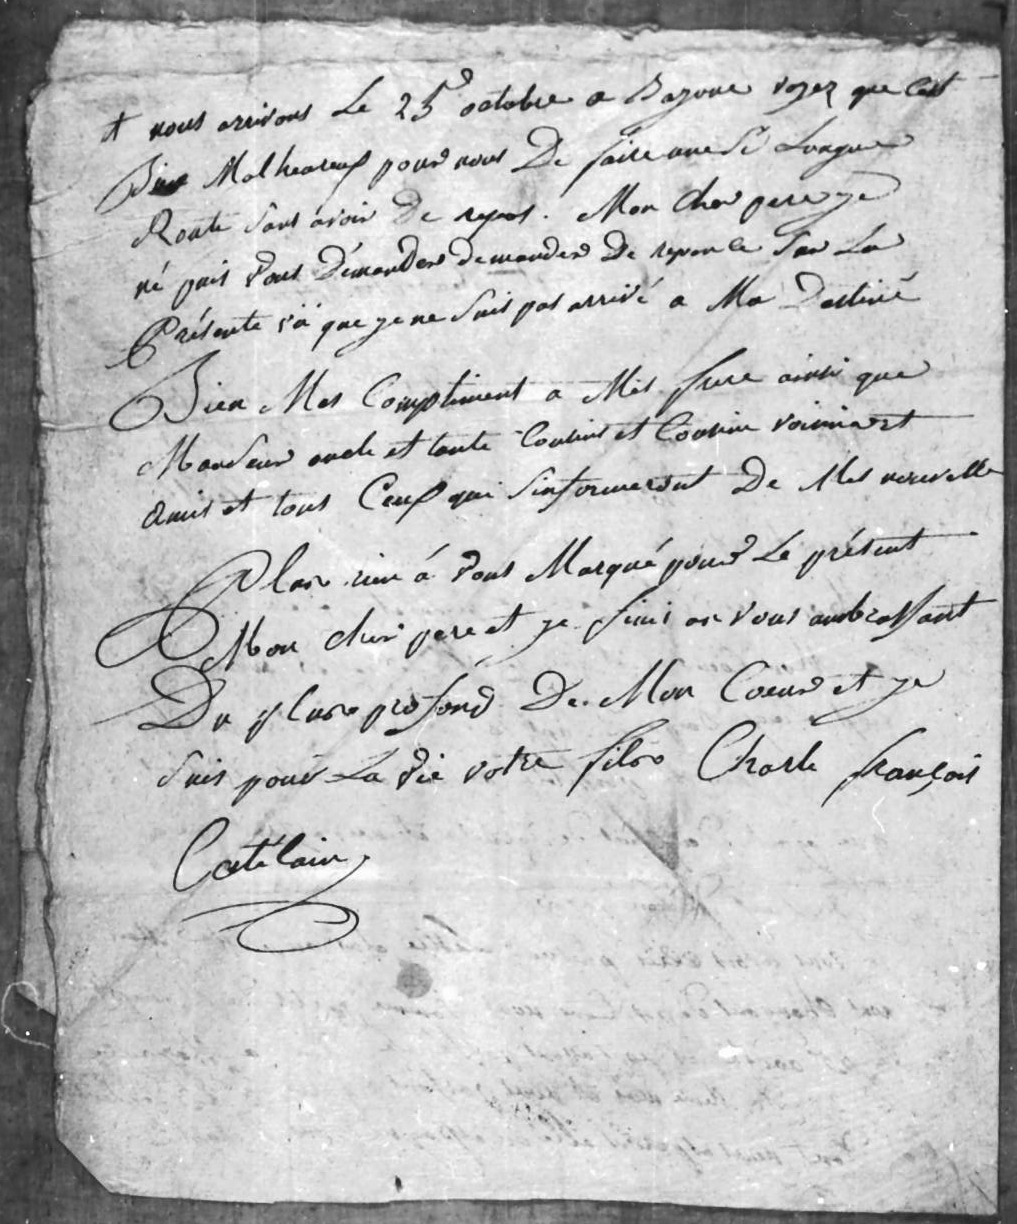 et nous arrivons Le 25e octobre a Bayone voyez que Cest
Bien Malheureux pour nous De faire une Si Longue
Route sans avoir De repos. Mon Cher pere je
né puis vous Démander demander De reponce Par La
Présente vû que je ne suis pas arrivé a Ma Destiné
Bien Mes Compliment a Mes frere ainsi que
Ma Seur oncle et tante Cousins et Cousine voisin et
amis et tous Ceux qui S'informeront De Mes nouvelle
Plus rien á vous Marqué pour Le présent
Mon cher pere et je finis en vous ambrassant
Du plus profond De Mon Coeur et je
suis pour La vie votre fils Charle françois
Catelain